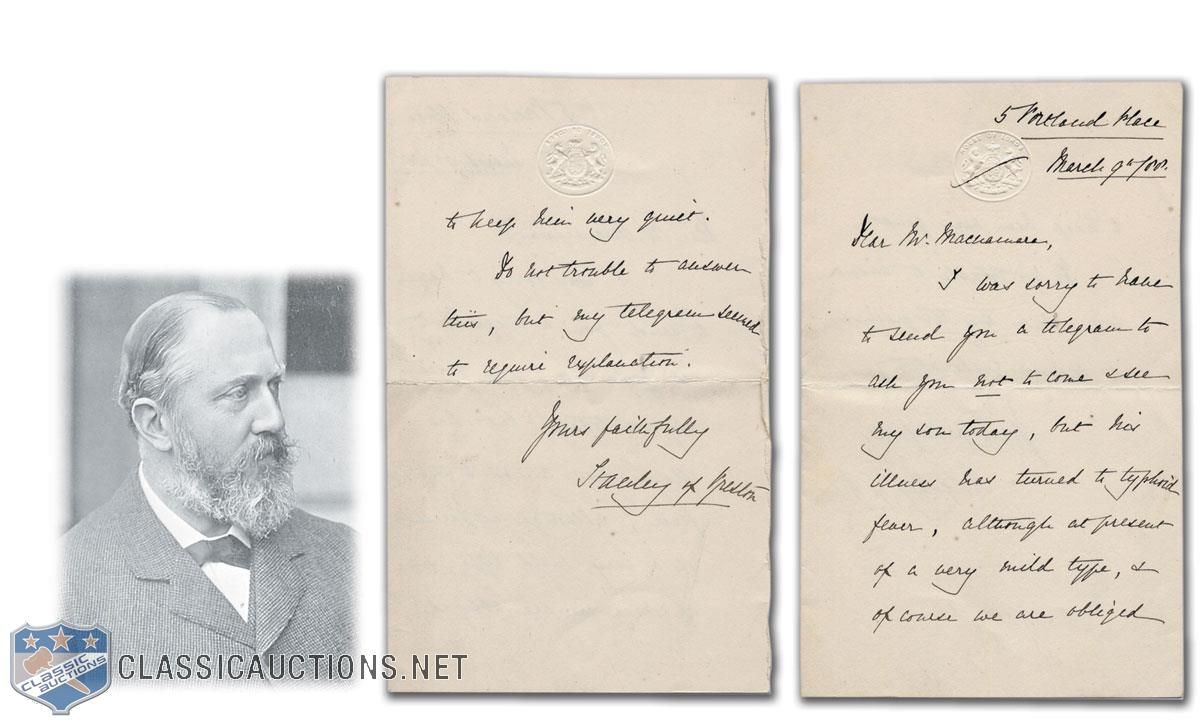 5 Portland Place
HOUSE OF LORDS
March 9th/88.
Dear Mr. Macnamara,
I was sorry to have
to send you a telegram to
ask you not to come & see
my son today, but his
illness has turned to typhoid
fever, although at present
of a very mild type, &
of course we are obliged
HOUSE OF LORDS
to keep him very quiet.
Do not trouble to answer
this, but my telegram seemed
to require explanation.
Yours faithfully
Stanley of Preston
CLASSIC
AUCTIONS
CLASSICAUCTIONS.NET